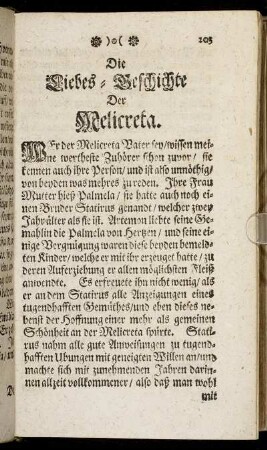 ❊ )o( ❊ 103
Die
Liebes-Geschichte
Der
Melicreta.
WEr der Melicreta Vater sey/wissen mei-
ne wertheste Zuhörer schon zuvor/ sie
kennen auch ihre Person/ und ist also unnöthig/
von beyden was mehres zu reden. Ihre Frau
Mutter hieß Palmela/ sie hatte auch noch ei-
nen Bruder Statirus genandt/ welcher zwey
Jahr älter als sie ist. Artemon liebte seine Ge-
mahlin die Palmela von Hertzen/ und seine ei-
nige Vergnügung waren diese beyden bemeld-
ten Kinder/ welche er mit ihr erzeuget hatte/ zu
deren Auferziehung er allen möglichsten Fleiß
anwendte. Es erfreuete ihn nicht wenig/ als
er an dem Statirus alle Anzeigungen eines
tugendhafften Gemüthes/ und eben dieses ne-
benst der Hoffnung einer mehr als gemeinen
Schönheit an der Melicreta spürte. Stati-
rus nahm alle gute Anweisungen zu tugend-
hafften Ubungen mit geneigten Willen an/und
machte sich mit zunehmenden Jahren darin-
nen allzeit vollkommener/ also daß man wohl
mit